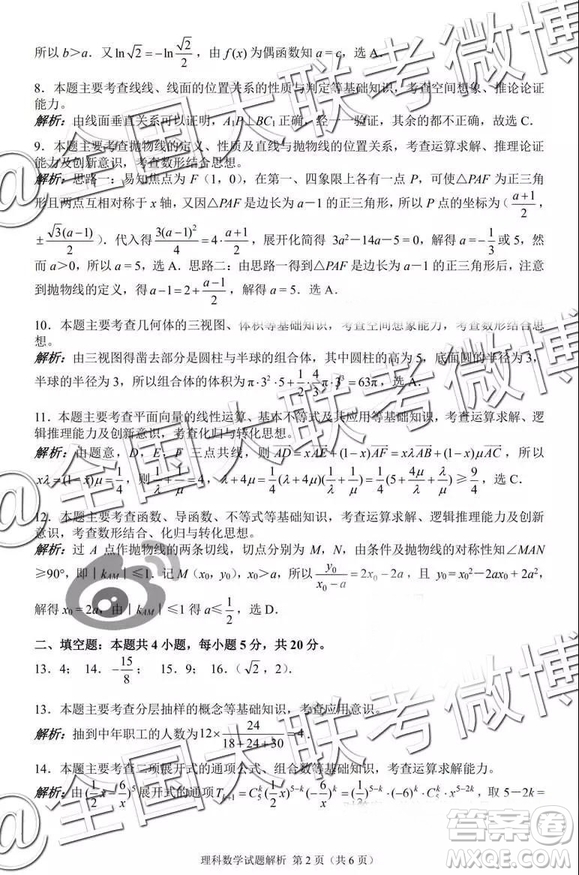 所以 b＞a．又 ln√2＝−ln(√2/2)，由 f (x) 为偶函数知 a＝c，选 A．
8．本题主要考查线线、线面的位置关系的性质与判定等基础知识，考查空间想象、推论论证
能力。
解析：由线面垂直关系可以证明，A₁P⊥BC₁ 正确，经一一验证，其它都不正确，故选 C．
9．本题主要考查抛物线的定义、性质及直线与抛物线的位置关系，考查运算求解、推理论证
能力及创新意识，考查数形结合思想。
解析：思路一：易知焦点为 F（1，0），在第一、四象限上各有一点 P，可使△PAF 为正三角
形且两点互相对称于 x 轴，又因△PAF 是边长为 a－1 的正三角形，所以 P 点的坐标为（(a+1)/2，
±√3(a−1)/2）．代入得 3(a−1)²/4＝4·(a+1)/2，展开化简得 3a²－14a－5＝0，解得 a＝−1/3 或 5，然
而 a＞0，所以 a＝5，选 A．思路二：由思路一得到△PAF 是边长为 a－1 的正三角形后，注意
到抛物线的定义，得 a−1＝2+(a−1)/2，解得 a＝5．选 A．
10．本题主要考查几何体的三视图、体积等基础知识，考查空间想象能力，考查数形结合思
想。
解析：由三视图得凿去部分是圆柱与半球的组合体，其中圆柱的高为 5，底面圆的半径为 3，
半球的半径为 3，所以组合体的体积为 π·3²·5+1/2·4/3·π·3³＝63π，选 A．
11．本题主要考查平面向量的线性运算、基本不等式及其应用等基础知识，考查运算求解、逻
辑推理能力及创新意识，考查化归与转化思想。
解析：由题意，D、E、F 三点共线，则 AD＝xAE+(1−x)AF＝xλAB+(1−x)μAC，所以
xλ＝(1−x)μ＝1/4，则 1/λ+4/μ＝1/4(λ+4μ)(1/λ+1/μ)＝1/4(5+4μ/λ+λ/μ)≥9/4，选 C．
12．本题主要考查函数、导函数、不等式等基础知识，考查运算求解、逻辑推理能力及创新意
识，考查数形结合、化归与转化思想。
解析：过 A 点作抛物线的两条切线，切点分别为 M，N，由条件及抛物线的对称性知∠MAN
≥90°，即｜kAM｜≤1．记 M（x₀，y₀），x₀＞a，所以 y₀/(x₀−a)＝2x₀－2a，且 y₀＝x₀²－2ax₀＋2a²，
解得 x₀＝2a，由｜kAM｜≤1 得 a≤1/2，选 D．
二、填空题：本题共 4 小题，每小题 5 分，共 20 分。
13．4； 14．−15/8； 15．9； 16．（√2，2）．
13．本题主要考查分层抽样的概念等基础知识，考查应用意识。
解析：抽到中年职工的人数为 12×24/(18+24+30)＝4．
14．本题主要考查二项展开式的通项公式、组合数等基础知识，考查运算求解能力。
解析：由(1/2x−6/x)⁵ 展开式的通项 Tₖ₊₁＝C₅ᵏ(1/2x)⁵⁻ᵏ(−6/x)ᵏ＝(1/2)⁵⁻ᵏ·(−6)ᵏ·C₅ᵏx⁵⁻²ᵏ，取 5－2k＝
理科数学试题解析 第 2 页（共 6 页）
@全国大联考微博
@全国大联考微博
答案圈
MXQE.COM